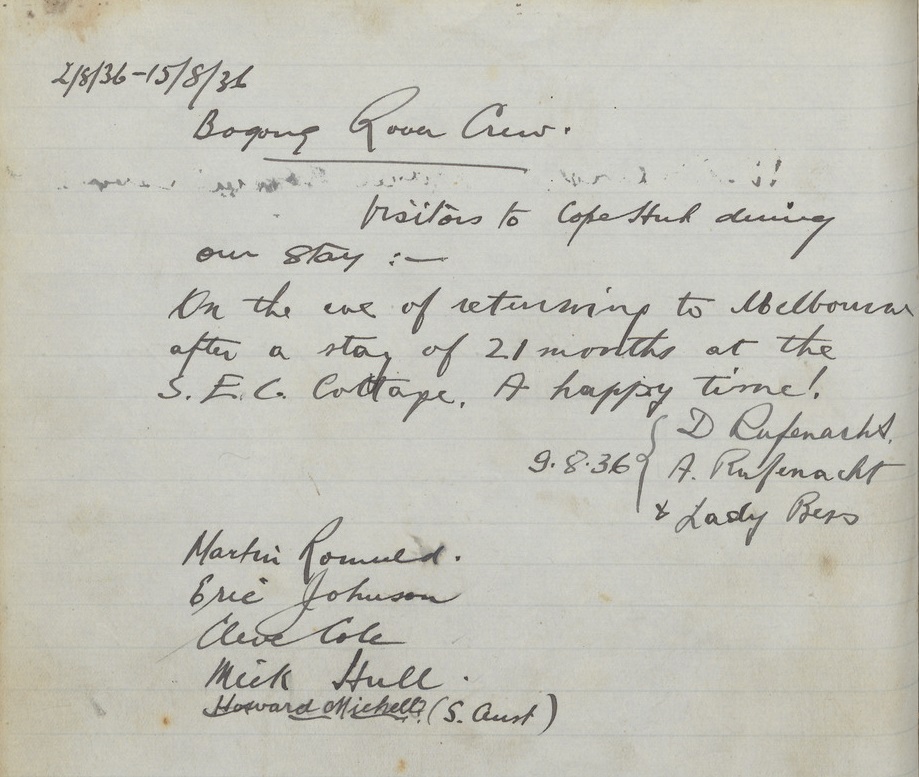 2/8/36-15/8/36
Bogong Rover Crew.
Visitors to Cope Hut during
our stay :—
On the eve of returning to Melbourne
after a stay of 21 months at the
S.E.C. Cottage. A happy time!
D Rufenacht.
9.8.36 { A. Rufenacht
& Lady Bess
Martin Romuld.
Eric Johnson
Cleve Cole
Mick Hull.
Howard Michell (S. Aust)